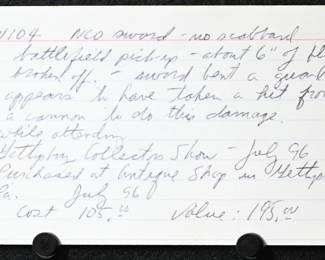 N104 NCO sword - no scabbard
battlefield pick up - about 6" of bl
broken off. - sword bent a quart
appears to have taken a hit from
a cannon to do this damage.
while attending
Gettysburg Collectors Show - July 96
Purchased at Antique Shop in Gettys
Pa. July 96
Cost 105.00 Value: 195.00